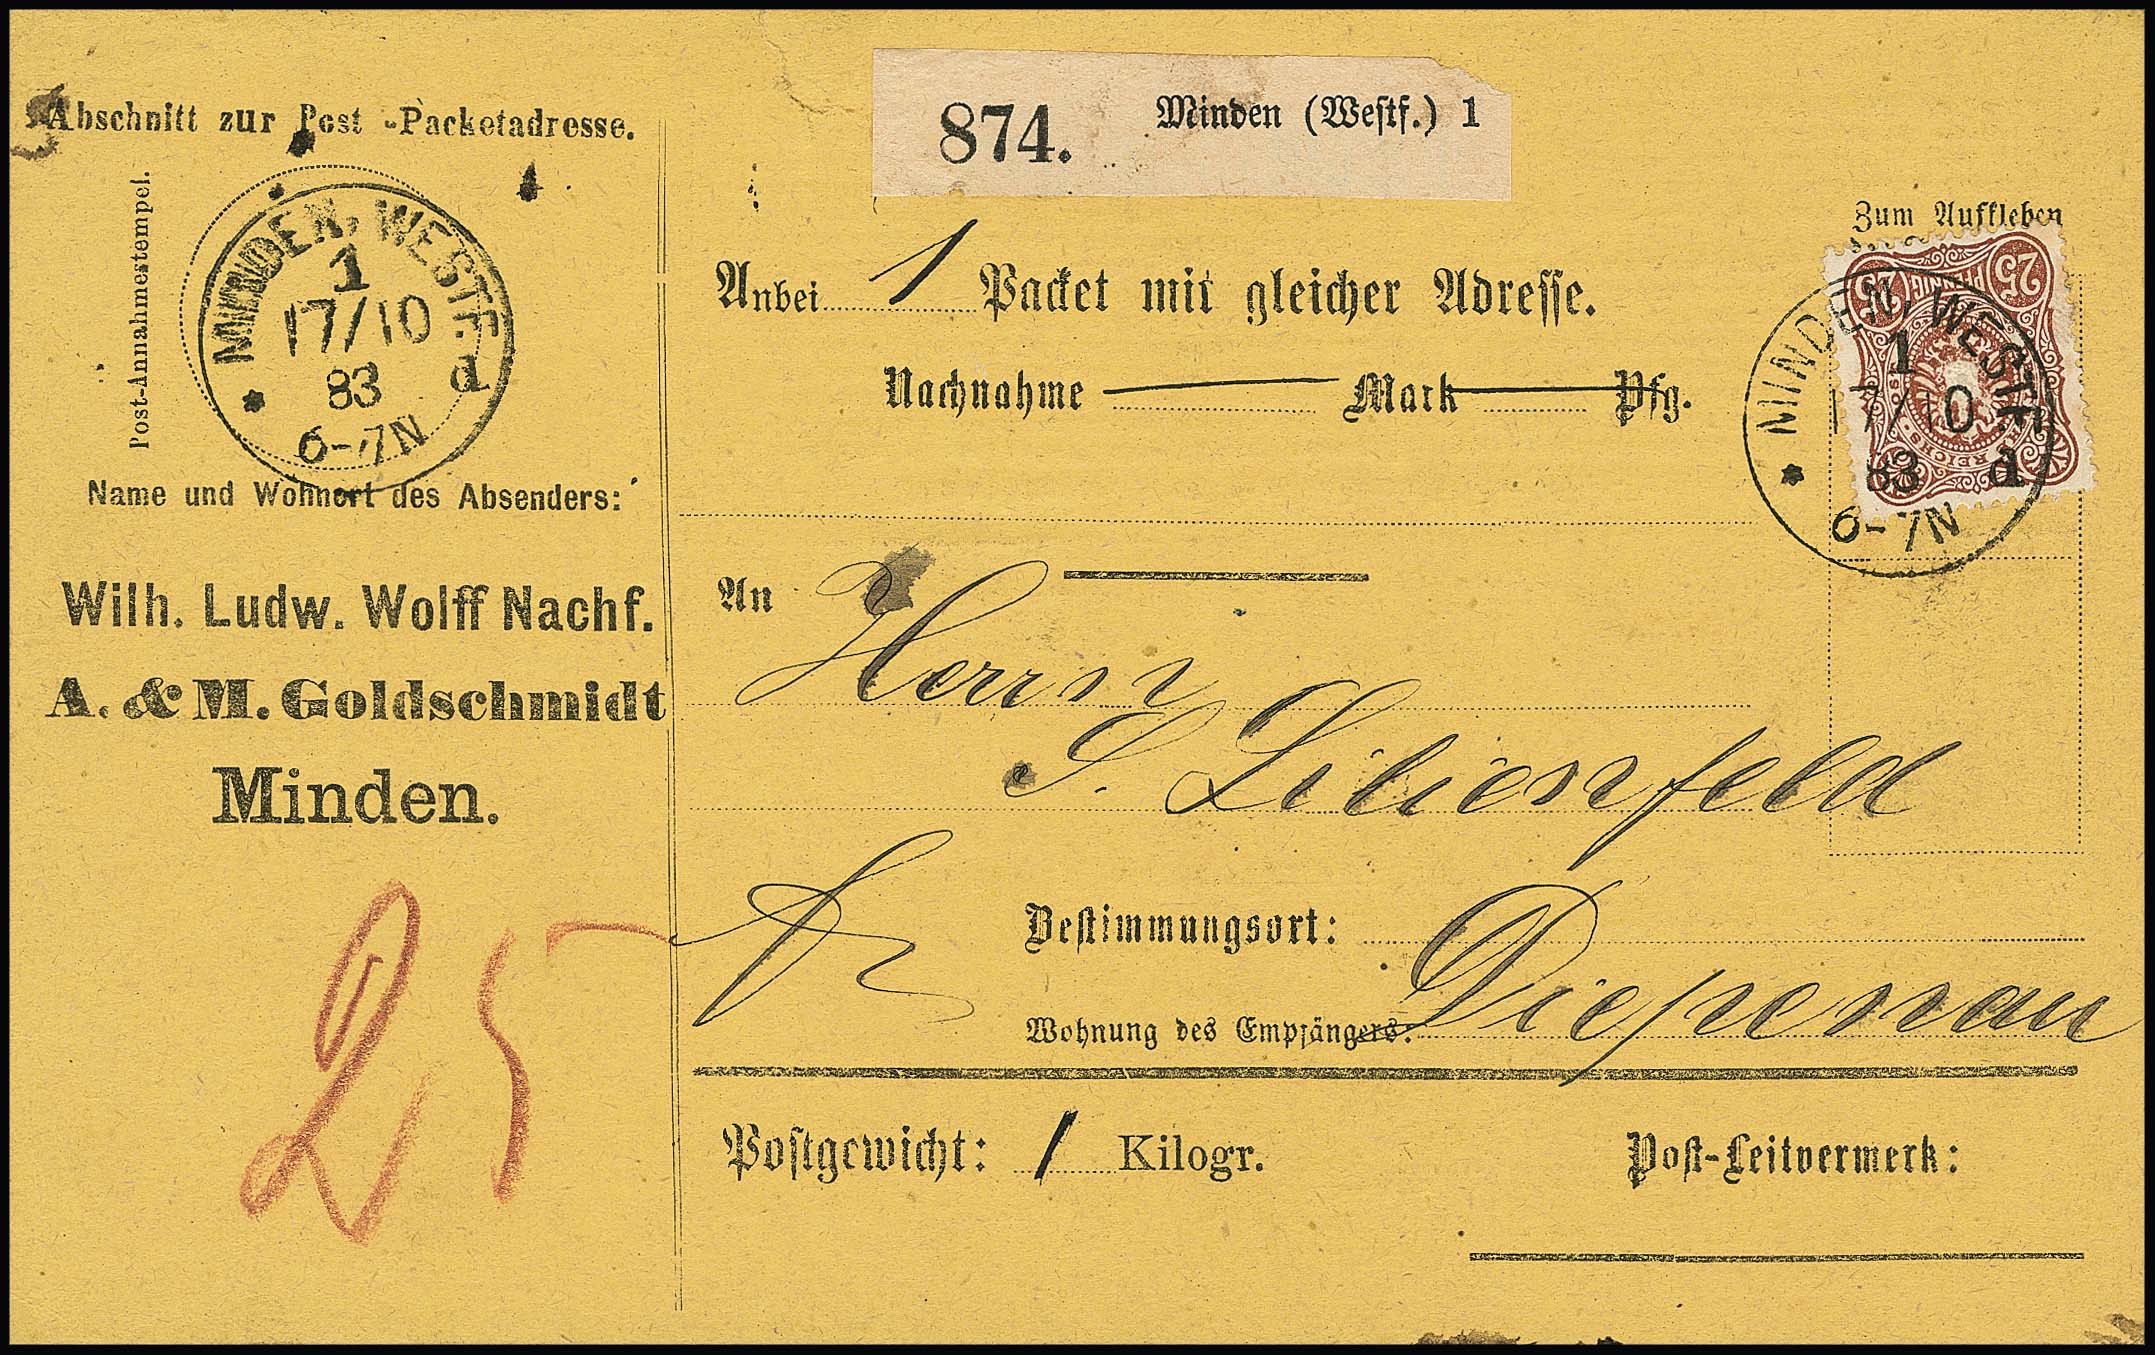 Abschnitt zur Post-Packetadresse.
Post-Annahmestempel.
MINDEN, WESTF.
1
17/10
83 d
6-7N
Name und Wohnort des Absenders:
Wilh. Ludw. Wolff Nachf.
A. & M. Goldschmidt
Minden.
25
874. Minden (Westf.) 1
Zum Aufkleben
25 PFENNIG 25
REICHS
MINDEN, WESTF.
1
17/10
83 d
6-7N
Anbei 1 Packet mit gleicher Adresse.
Nachnahme Mark Pfg.
An
Herrn
S. Lilienfeld
Bestimmungsort:
Diepenau
Wohnung des Empfängers:
Postgewicht: 1 Kilogr.
Post-Leitvermerk: